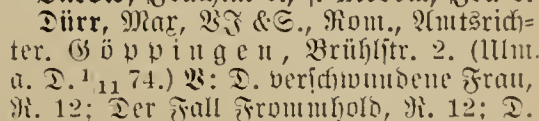 Dürr, Max, VJ &S., Rom., Amtsrich-
ter. Göppingen, Brühlstr. 2. (Ulm
a. D. 1/11 74.) V: D. verschwundene Frau,
R. 12; Der Fall Frommhold, R. 12; D.